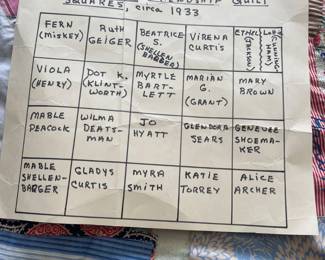 SQUARES, FRIENDSHIP QUILT
circa 1933
FERN
(MISKEY)
RUTH
GEIGER
BEATRICE
S.
(SHELLEN-
BARGER)
VIRENA
CURTIS
ETHEL
(JACKSON)
VIOLA
(HENRY)
DOT K.
(KLINT-
WORTH)
MYRTLE
BART-
LETT
MARIAN
G.
(GRANT)
MARY
BROWN
MABLE
PEACOCK
WILMA
DEATS-
MAN
JO
HYATT
GLENDORA
SEARS
GENEVEE
SHOEMA-
KER
MABLE
SHELLEN-
BARGER
GLADYS
CURTIS
MYRA
SMITH
KATIE
TORREY
ALICE
ARCHER